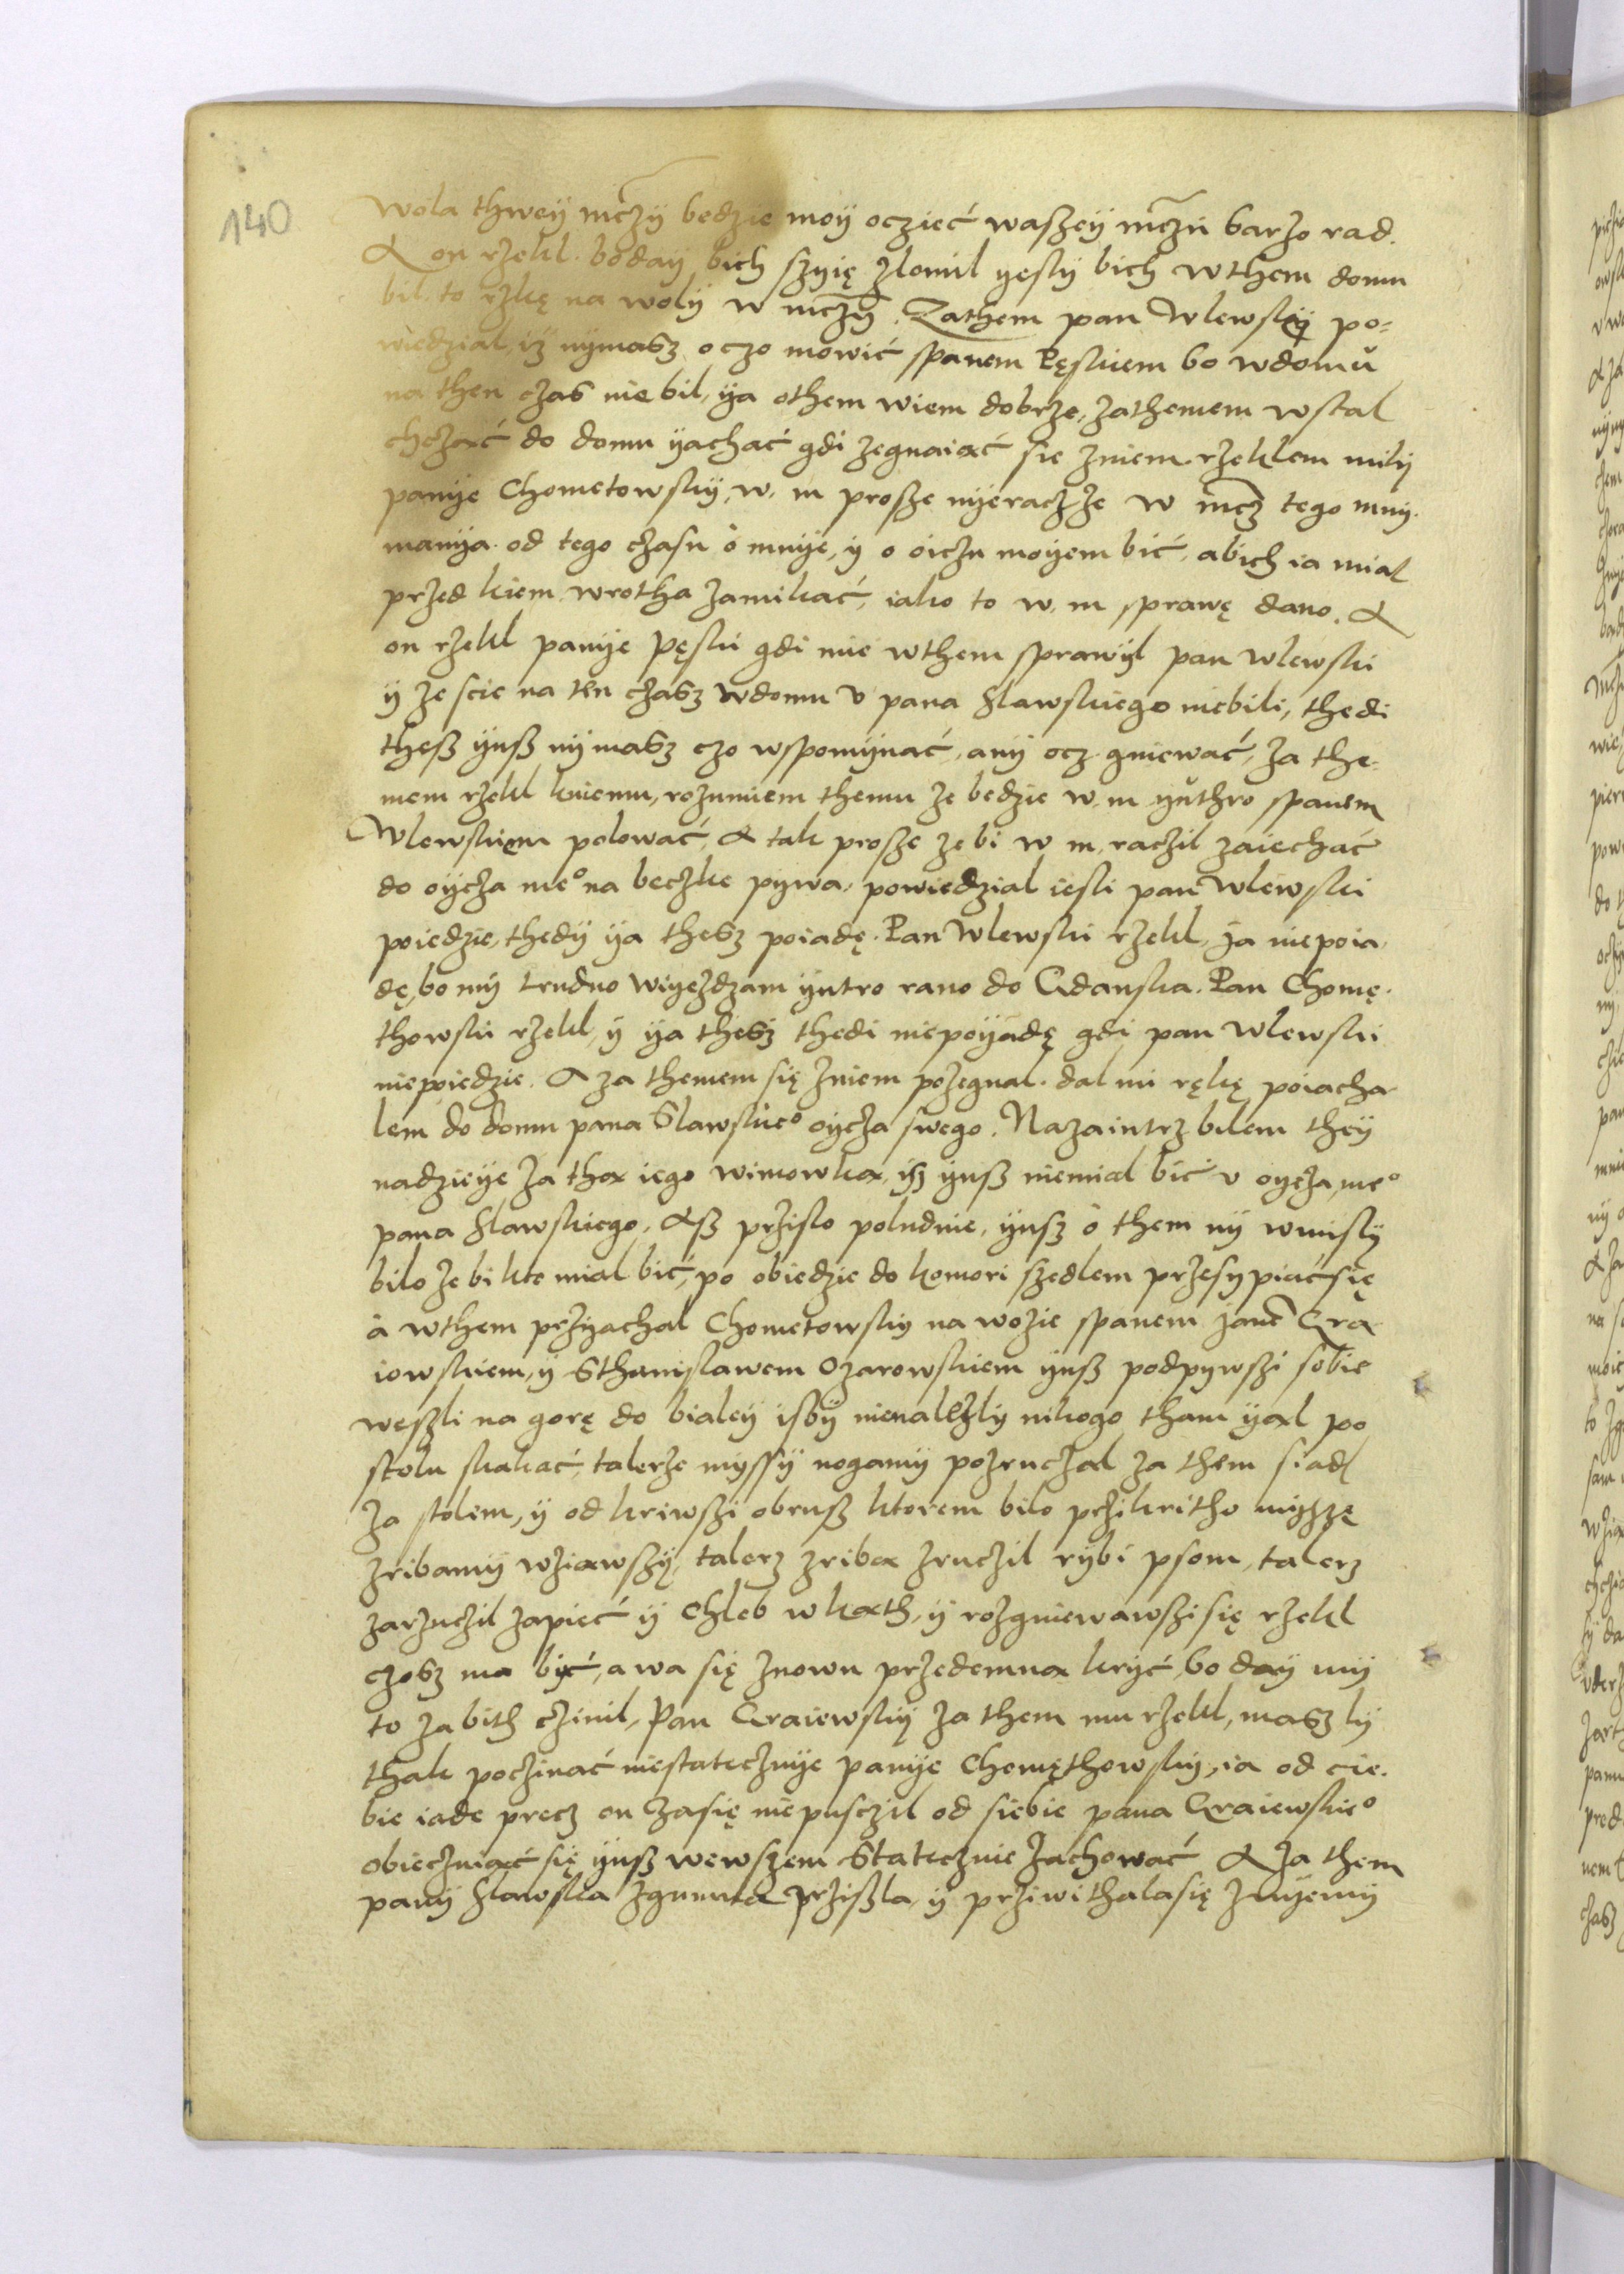 140
wola thwey mczy bedzie moy oczieć waszey mczi barzo rad.
A on rzekl. boday bich szyię zlomil yesly bich wthem domu
bil. to rzkę na woly w mczy. Zathem pan Wlewsky po=
wiedzial, iz nymasz o czo mowić spanem Pęskiem bo wdomu
na then czas nie bil, ya othem wiem dobrze, zathemem wstal
chcząć do domu yachać gdi zegnaiąć sie zniem rzeklem mily
panye Chometowsky, w. m prosze nyeracz ze w mcz tego mny.
manya od tego czasu o mnye, y o oiczu moyem bić, abich ia mial
przed kiem wrotha zamikać, iako to w. m sprawę dano. A
on rzekl panye Pęski gdi mie wthem sprawyl pan Wlewski
y ze scie na ten czasz wdomu v pana slawskiego niebili, thedi
thesz ynsz nymasz czo wspomynać, any ocz gniewać, za the-
mem rzekl kniemu, rozumiem themu ze bedzie w. m ynthro spanem
Wlewskiem polować, A tak prosze ze bi w m. raczil zaiechać
do oycza me° na beczke pywa, powiedzial iesli pan Wlewski
poiedzie, thedy ya thesz poiadę. Pan Wlewski rzekl, ja niepoia,
dę, bo my trudno wiyezdzam yntro rano do Gdanska. Pan Chomę.
thowski rzekl, y ya thesz thedi niepoyadę gdi pan Wlewski
niepoiedzie. A za themem się zniem pozegnal. dal mi rękę poiacha
lem do domu pana Slawskie° oycza swego. Nazaintrz bilem they
nadzieye za thą iego wimowką, isz ynsz niemial bić v oycza, me°
pana slawskiego, Asz przislo poludnie, ynsz o them ny wmisly
bilo ze bi kto mial bić, po obiedzie do komori szedlem przesypiać się
a wthem przyachal Chometowsky na wozie spanem janem Gra
iowskiem, y Sthanislawem Ozarowskiem ynsz podpywszi sobie
weszli na gorę do bialey isby nienalezly nikogo tham yal po
stolu skakać, talerze myssy nogamy pozruczal za them siadl
za stolem, y od kriwszi obrusz ktorem bilo przikritho myszę
zribamy wziąwszy, talerz zribą zruczil rybi psom, talerz
zarzuczil zapieć y chleb w kąth, y rozgniewawszi się rzekl
czosz ma być, a wa się znowu przedemną kryć, bo day my
to zabith czinil, Pan Graiewsky za them mu rzekl, masz ly
thak poczinać niestatecznye panye Chomęthowsky, ia od cie.
bie iade precz on zasię niepusczil od siebie pana Graiewskie°
obieczuiąć się ynsz wewszem Statecznie zachować A za them
pany slawska zgumna przissla, y przywithala się znyemy